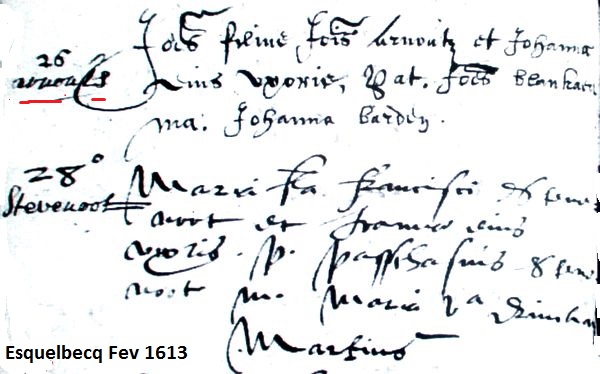 26
Joes filius Jois Arnoutz et Johanna
eius uxoris, pat. Joes blankaer
ma. Johanna barden.
28°
Stevenoot
Maria fa Francisci Steve
noot et eius
uxoris. p. passchasius Steve
noot m. Maria va
Martius
Esquelbecq Fev 1613